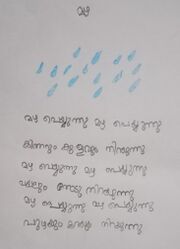 മഴ
മഴ പെയ്യുന്നു മഴ പെയ്യുന്നു
കിണറും കുളവും നിറയുന്നു
മഴ പെയ്യുന്നു മഴ പെയ്യുന്നു
വയലും തോടു നിറയുന്നു
മഴ പെയ്യുന്നു മഴ പെയ്യുന്നു
പുഴയും നിറയുന്നു